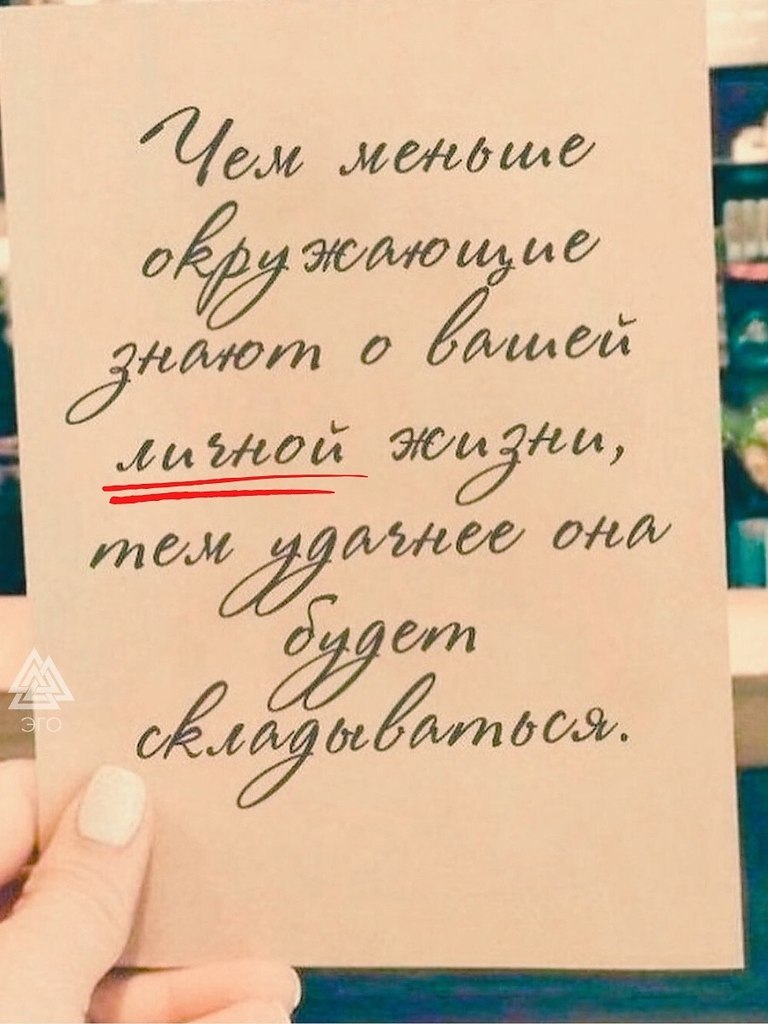 Чем меньше
окружающие
знают о вашей
личной жизни,
тем удачнее она
будет
складываться.
ЭГО